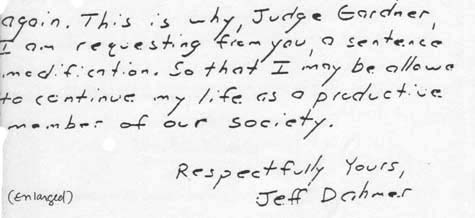 again. This is why, Judge Gardner,
I am requesting from you, a sentence
modification. So that I may be allowe
to continue my life as a productive
member of our society.
Respectfully Yours,
(Enlarged)
Jeff Dahmer